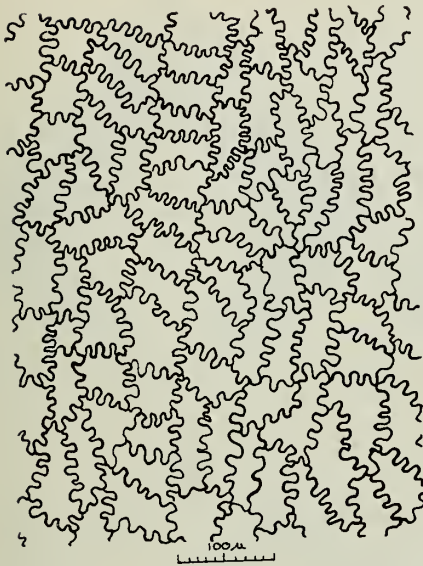 100 μ